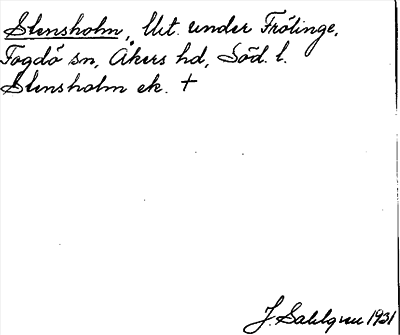 Stensholm, Utt. under Frölinge,
Fogdö sn, Åkers hd, Söd. l.
Stensholm ek. †
J. Sahlgren 1931